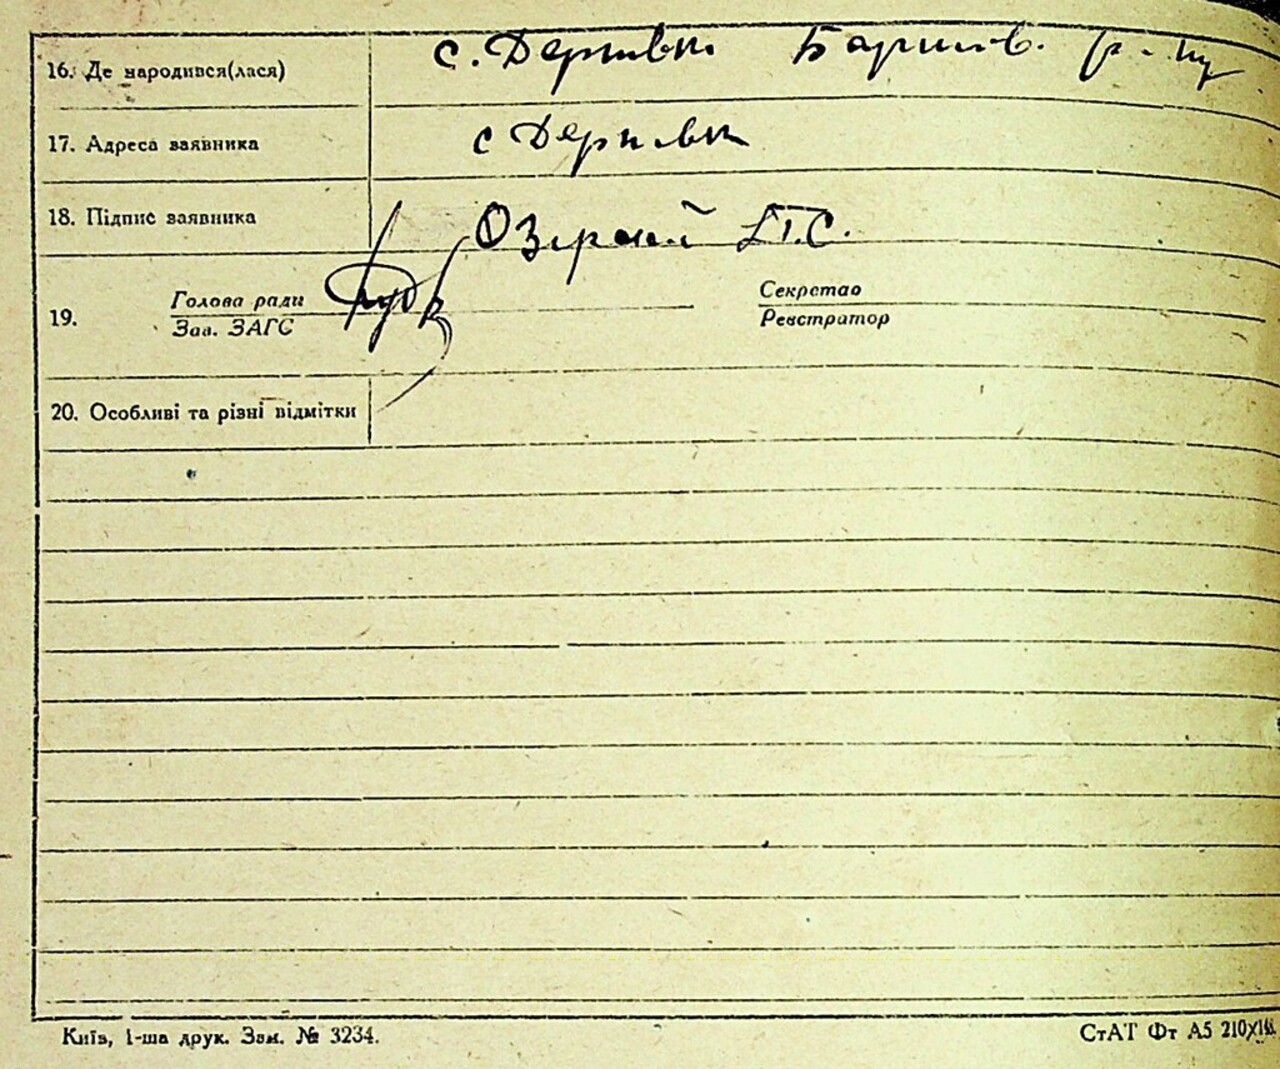 16. Де народився(лася) с. Дернівки Баришів. р-ну
17. Адреса заявника с Дернівки
18. Підпис заявника Озірний П.С.
19. Голова ради Секретар
Зав. ЗАГС Реєстратор
20. Особливі та різні відмітки
Київ, 1-ша друк. Зам. № 3234.
СтАТ Фт А5 210X148.